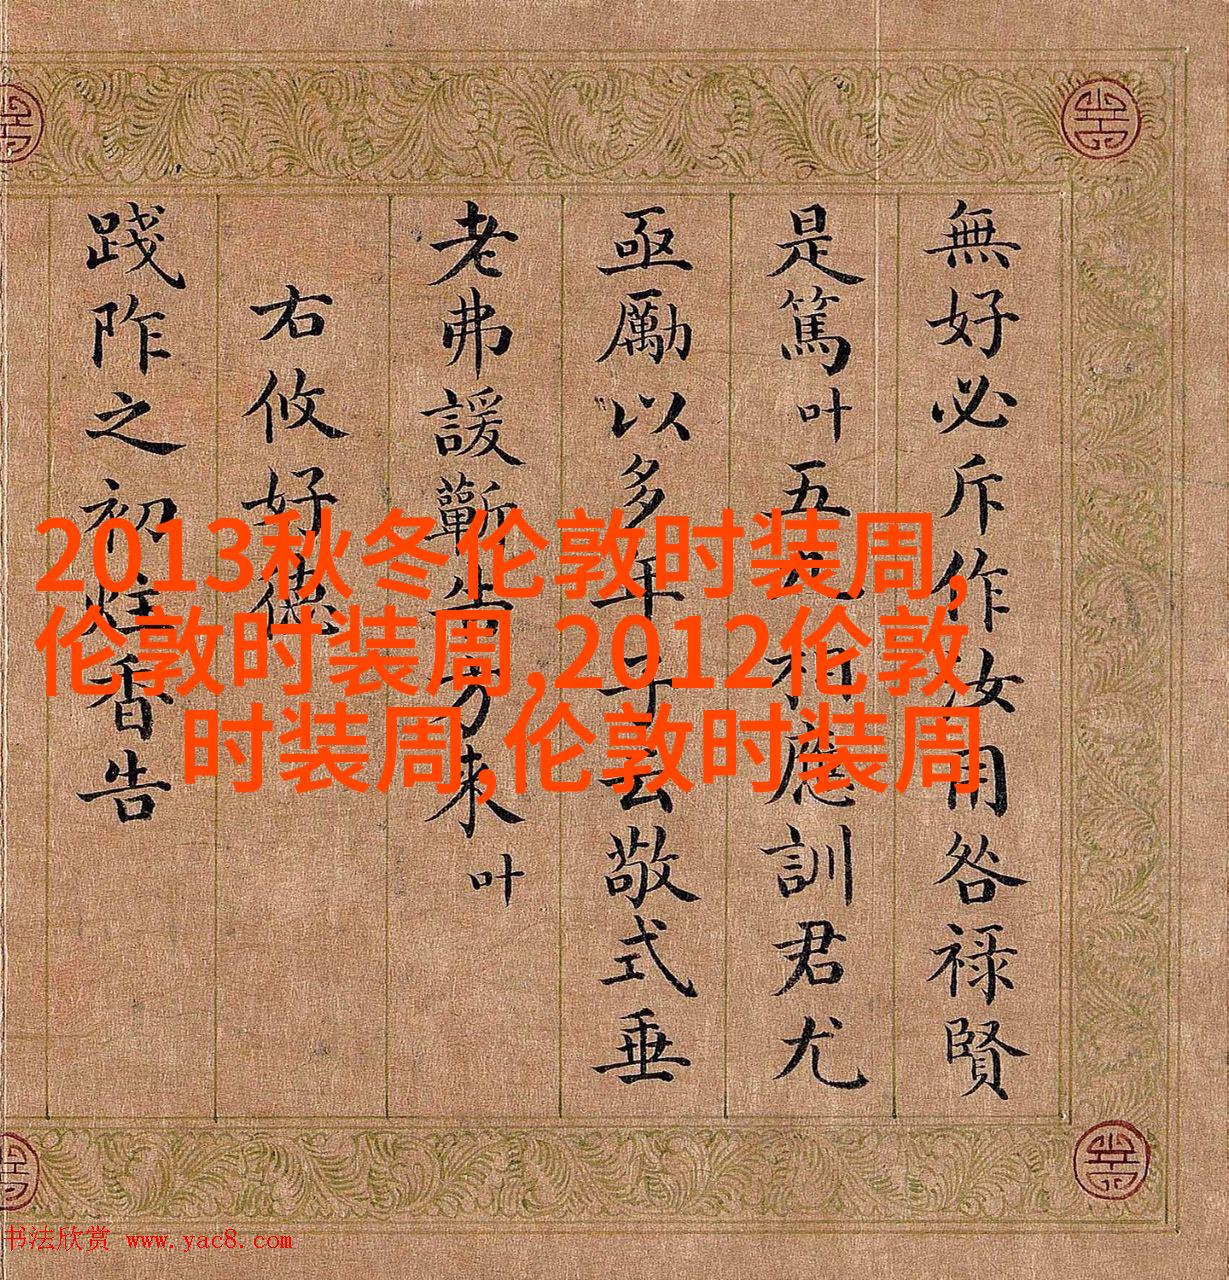 無好必斥作汝用咎禄賢
是篤叶五相應訓君尤
亟勵以多年敬式垂
老弗諼蘄告方來叶
右攸好德
踐阼之初炷香告
2013秋冬伦敦时装周,
伦敦时装周,2012伦敦
时装周,伦敦时装周
书法欣赏 www.yac8.com